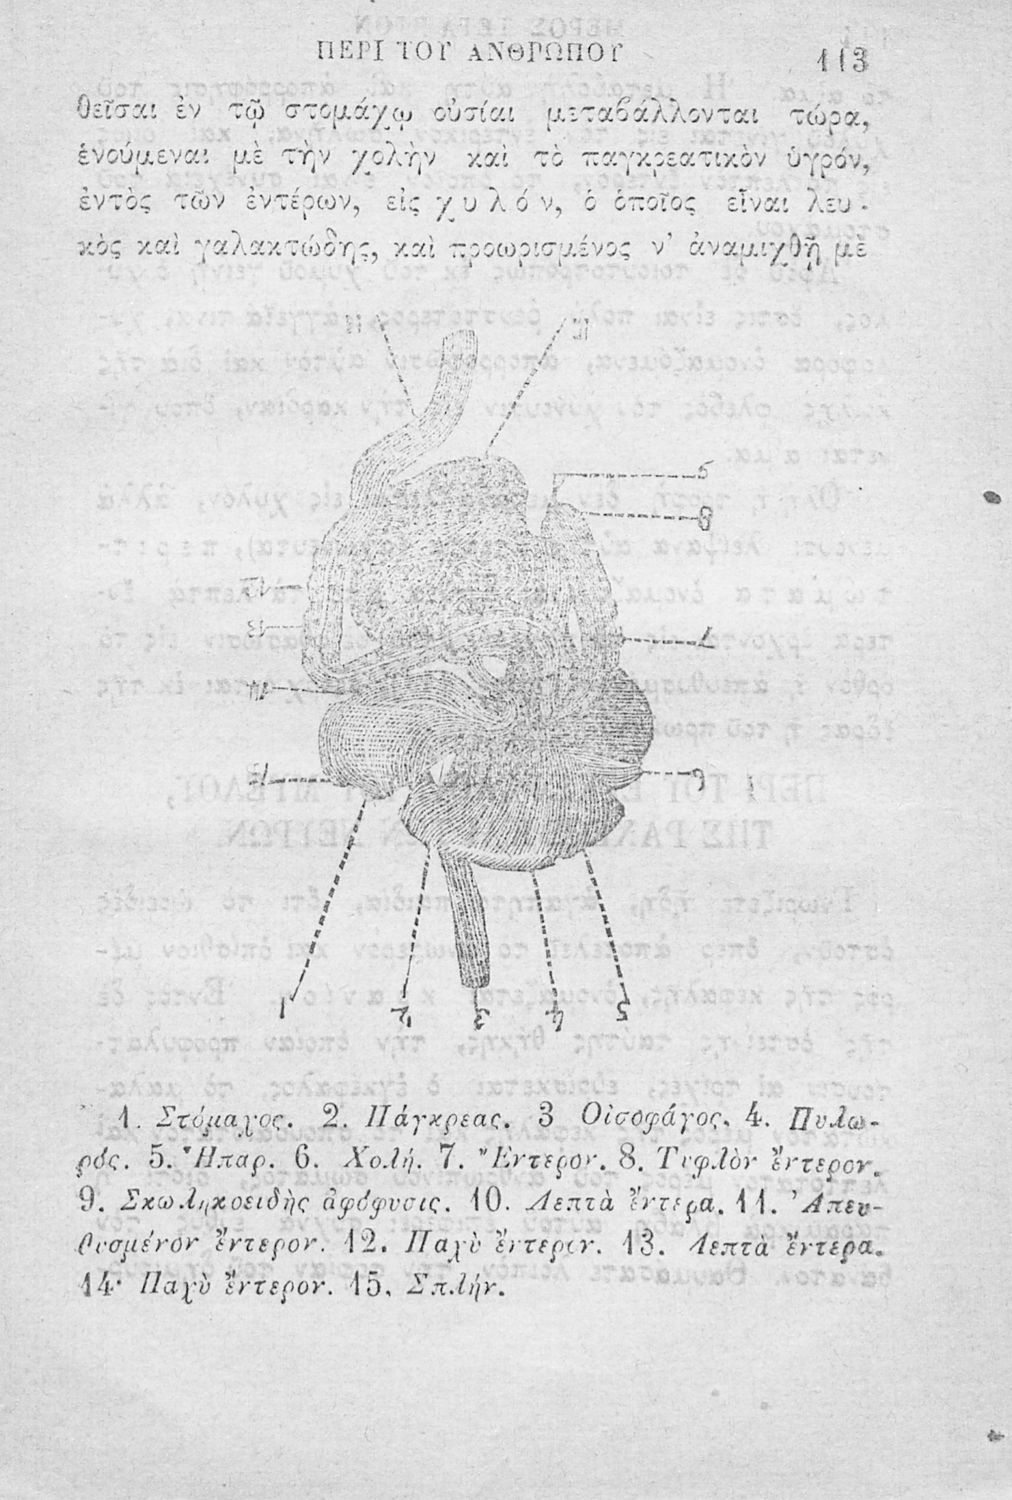 ΠΕΡΙ ΤΟΥ ΑΝΘΡΩΠΟΥ 113
θεῖσαι ἐν τῷ στομάχῳ οὐσίαι μεταβάλλονται τώρα,
ἑνούμεναι μὲ τὴν χολὴν καὶ τὸ παγκρεατικὸν ὑγρόν,
ἐντὸς τῶν ἐντέρων, εἰς χυλόν, ὁ ὁποῖος εἶναι λευ-
κὸς καὶ γαλακτώδης, καὶ προωρισμένος ν' ἀναμιχθῇ μὲ
9
8
7
6
1 2 3 4 5
1. Στόμαχος. 2. Πάγκρεας. 3 Οἰσοφάγος. 4. Πυλω-
ρός. 5. Ἧπαρ. 6. Χολή. 7. Ἔντερον. 8. Τυφλὸν ἔντερον.
9. Σκωληκοειδὴς ἀφόφυσις. 10. Λεπτὰ ἔντερα. 11. Ἀπευ-
θυσμένον ἔντερον. 12. Παχὺ ἔντερον. 13. Λεπτὰ ἔντερα.
14· Παχὺ ἔντερον. 15. Σπλήν.